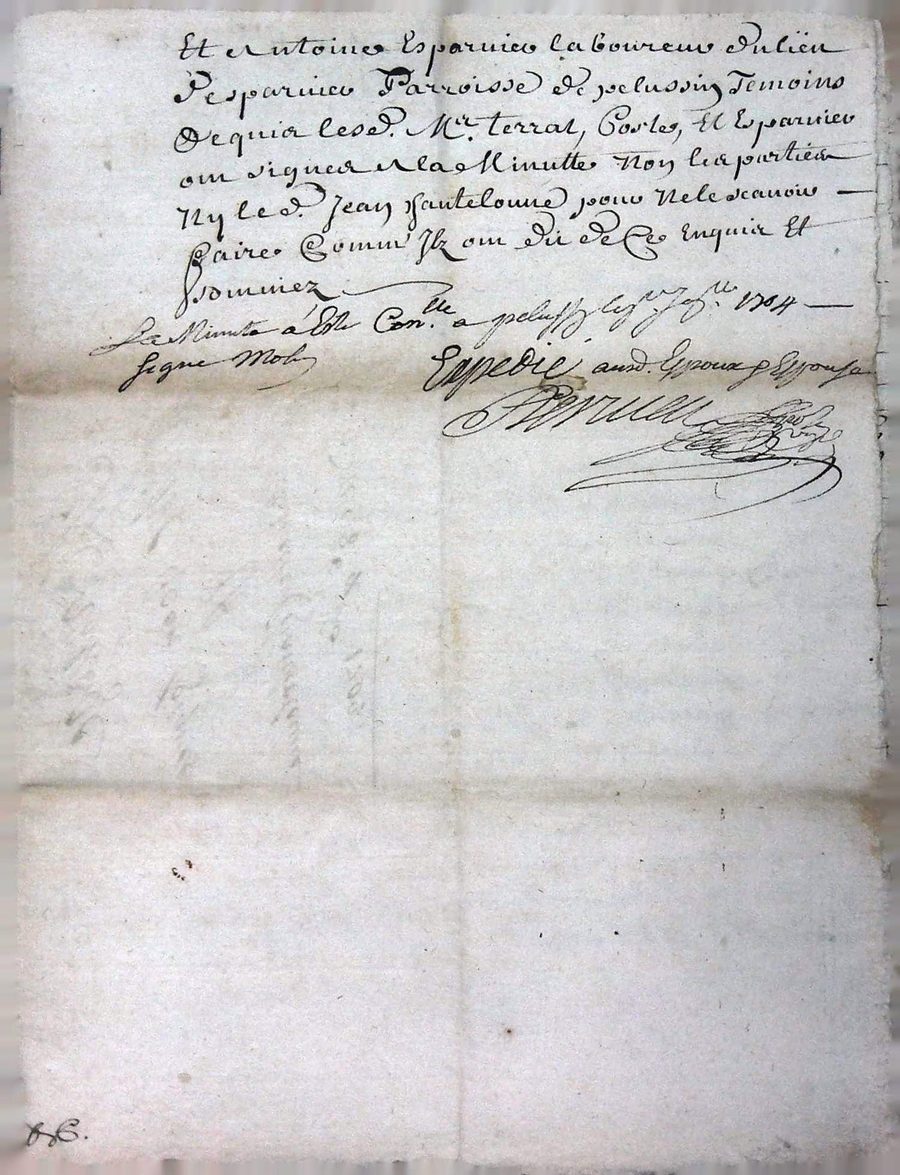 Et Antoine Esparvier laboureur du lieu
D'esparvier Parroisse de pelussin Temoins
Requis lesd. Mr. terrat, Coste, Et Esparvier
ont signez a la Minutte Non les parties
Ny led. Jean Chantelouve pour ne le scavoir
faire Comm' Ilz ont dit de Ce Enquis Et
Sommez
La Minute a esté Con.lle a peluss 1704
Signe
Expedié ausd. Espoux & Espouse